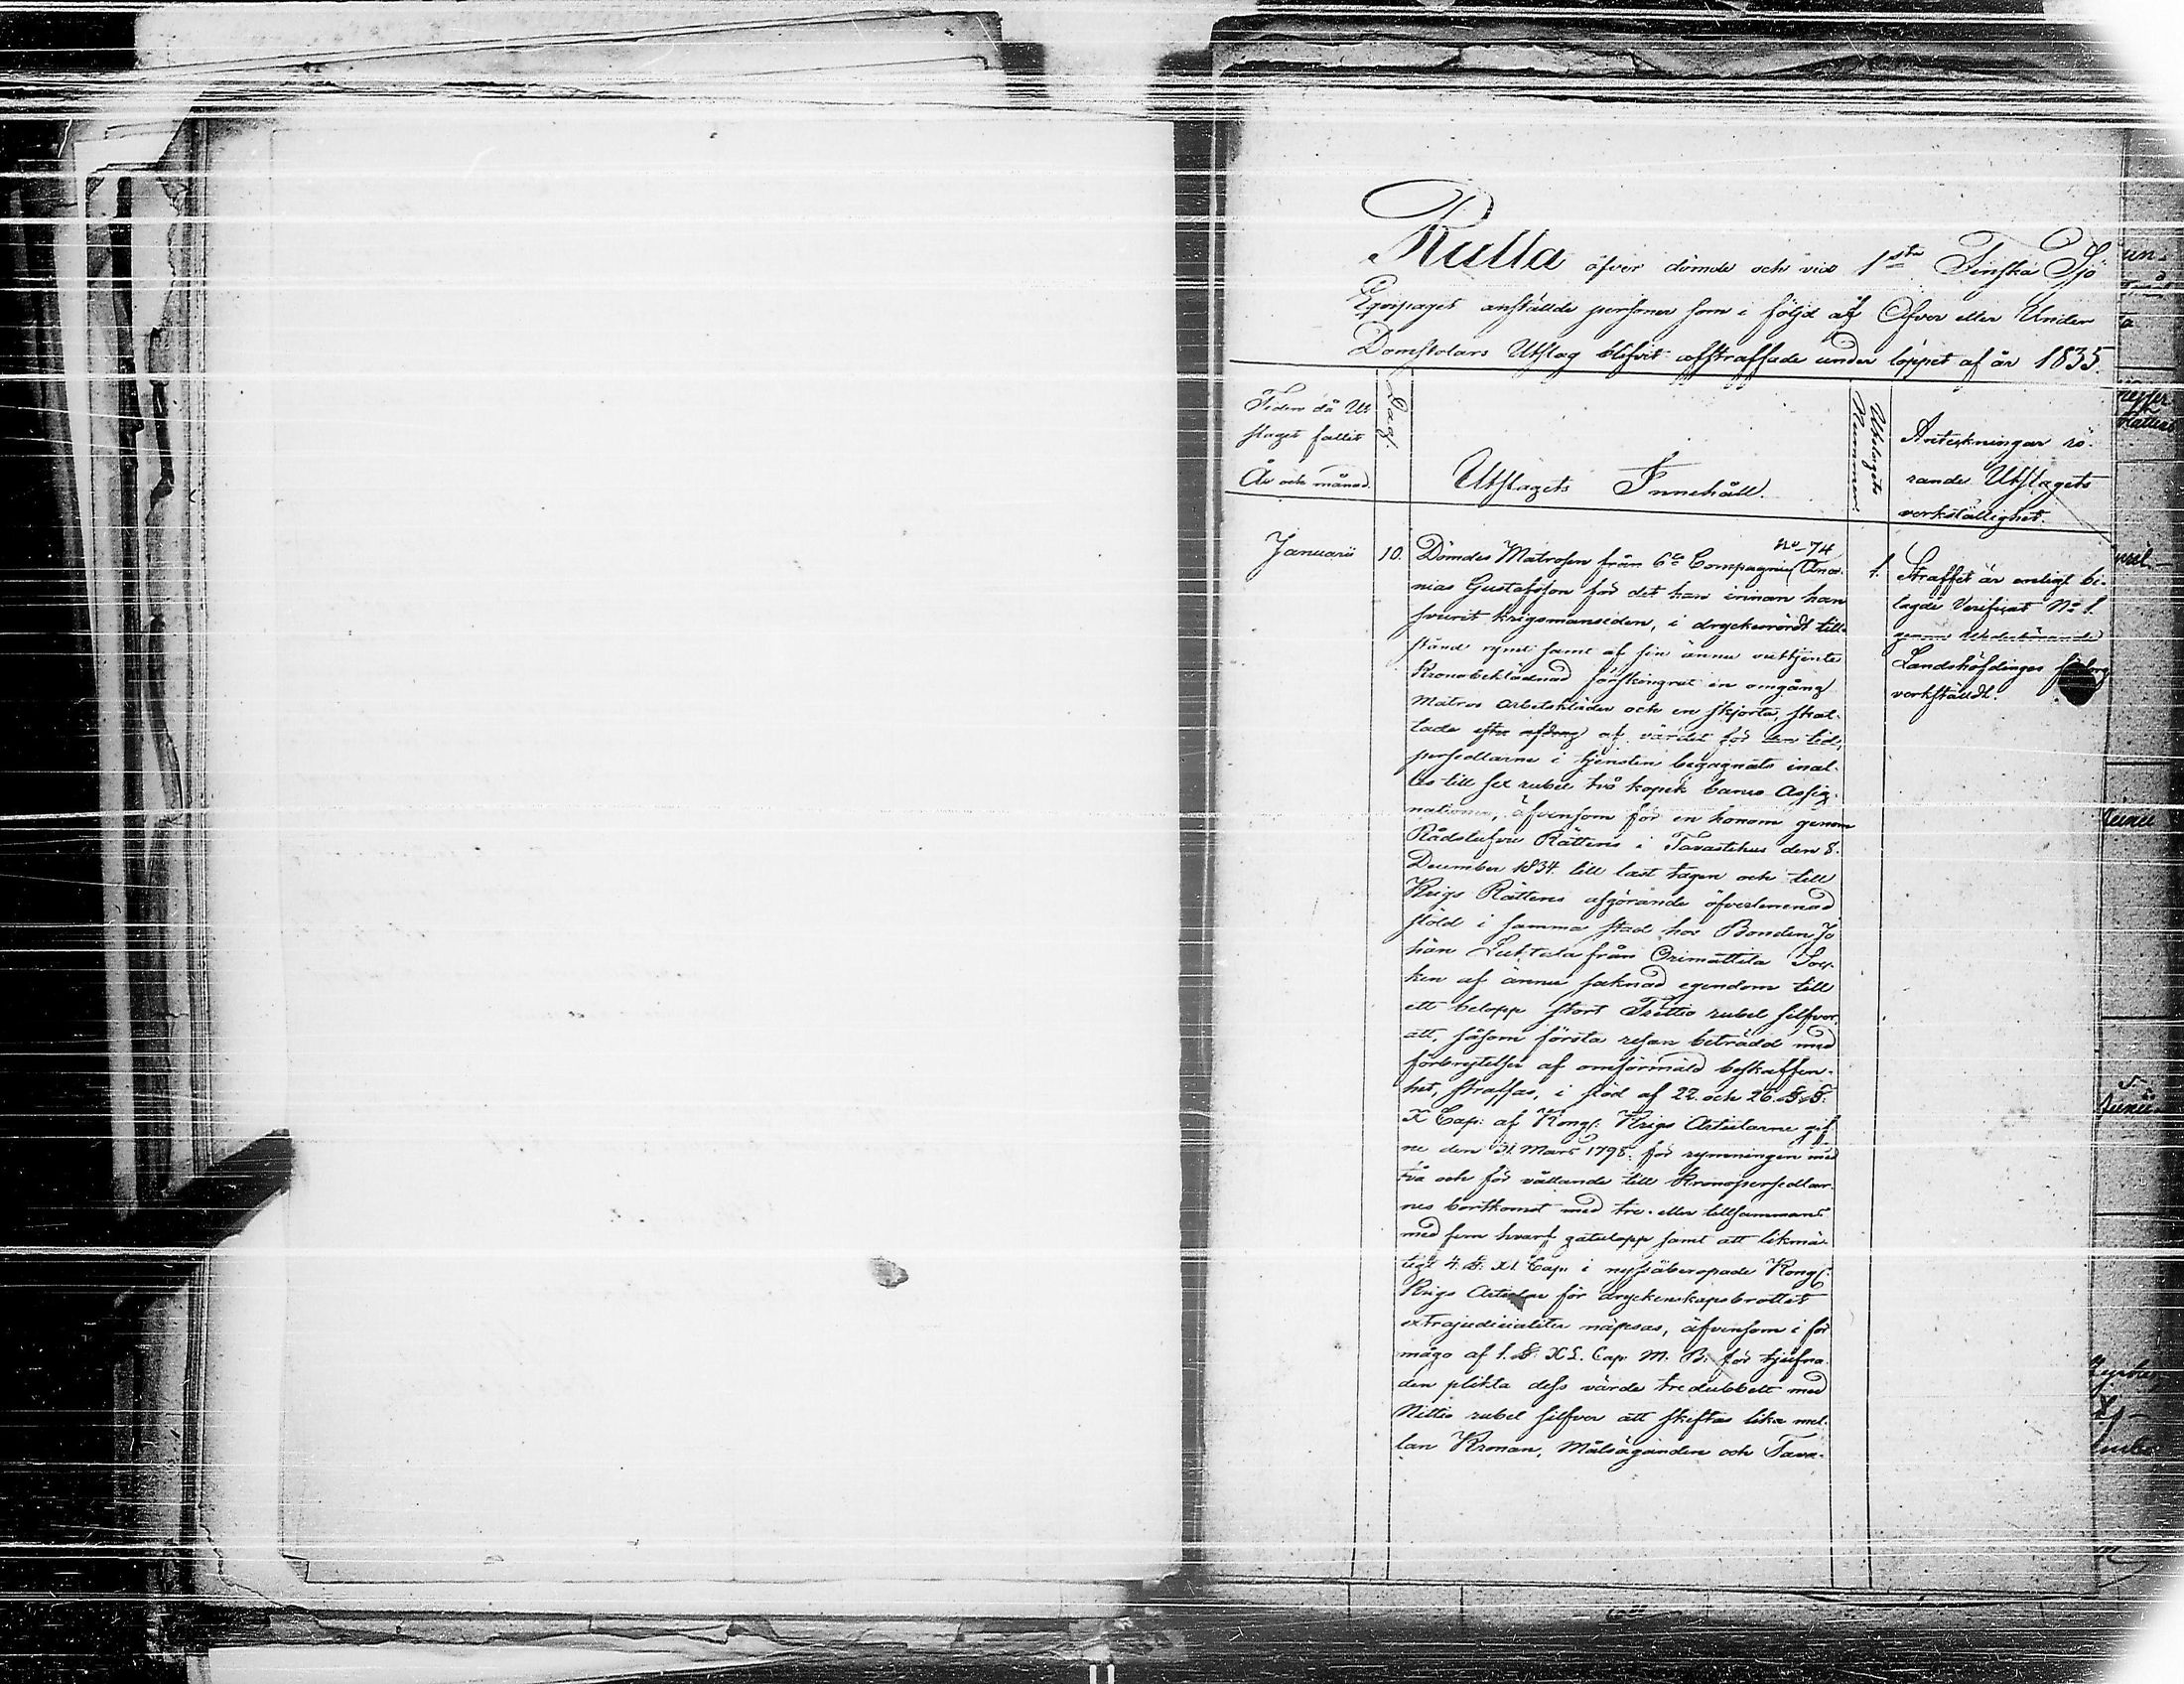 Rulla öfver dömde och vid 1sta Finska Sjö
Equipaget anställde personer som i följd af Öfver eller Under
Domstolars Utslag blifvit afstraffade under loppet af år 1835.
Tiden då Ut
slaget fallit
År och månad.
Dag.
Utslagets Innehåll.
Utslagets
Nummer.
Anteckningar rö-
rande Utslagets
verkställighet.
Januarii
10.
No 74
Dömdes Matrosen från 6te Compagniet Ana-
nias Gustafsson för det han innan han
svurit krigsmanseden, i dryckesrördt till-
stånd rymt samt af sin ännu outtjente
Kronobeklädnad förskingrat en omgång
Matros arbetskläder och en skjorta, skat-
tade efter afdrag af värdet för den tid,
persedlarne i tjensten begagnats inal-
les till sex rubel två kopek banco Assig-
nationer, äfvensom för en honom genom
Rådstufvu Rättens i Tavastehus den 8.
December 1834 till last tagen och till
Krigs Rättens afgörande öfverlemnad
stöld i samma stad hos Bonden Jo
han Luhtala från Orimattila Soc-
ken af ännu saknad egendom till
ett belopp stort Trettio rubel silfver,
att, såsom första resan beträdd med
förbrytelser af omförmäld beskaffen-
het, straffas, i stöd af 22. och 26. §.§.
X Cap: af Kongl: Krigs Articlarne gif-
ne den 31 Mars 1798. för rymningen med
två och för vållande till Kronopersedlar-
nes bortkomst med tre. eller tillsammans
med fem hvarf gatulopp samt att likmä-
tigt 4. §. XI Cap: i nyssåberopade Kongl:
Krigs Articlar för dryckenskapsbrottet
extrajudicialiter näpsas, äfvensom i för
mågo af 1. §. XL. Cap. M. B. för tjufna-
den plikta dess värde tredubbelt med
Nittio rubel silfver att skiftas lika mel-
lan Kronan, Målsäganden och Tava-
1.
Straffet är enligt bi-
lagde Verificat No 1.
genom
Landshöfdinges
verkställdt.